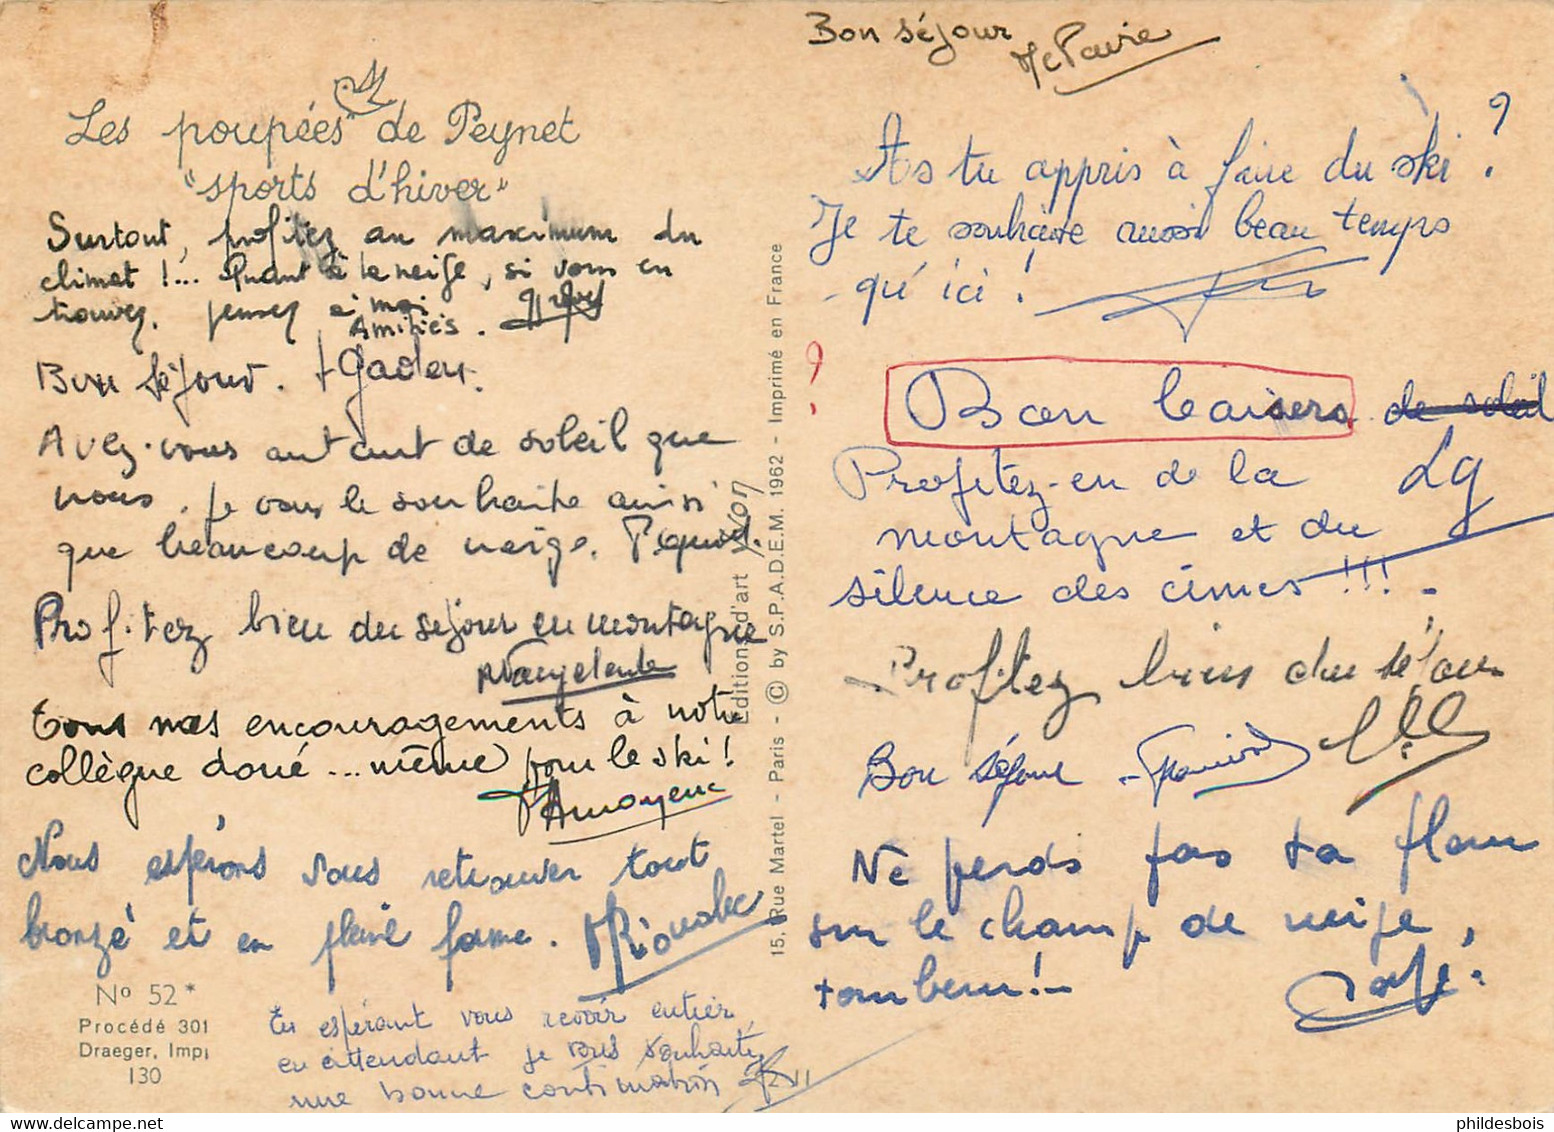 Les poupées de Peynet
"sports d'hiver"
Surtout, profitez au maximum du
climat !... Quant à la neige, si vous en
trouvez, pensez à moi
Amitiés.
Bon séjour.
Avez-vous autant de soleil que
nous. Je vous le souhaite ainsi
que beaucoup de neige.
Profitez bien du séjour en montagne
Tous mes encouragements à notre
collègue doué ... même pour le ski !
Nous espérons vous retrouver tout
bronzé et en pleine forme.
N° 52*
Procédé 301
Draeger, Imp
130
En espérant vous revoir entier,
en attendant je vous souhaite
une bonne continuation
Editions d'art Yvon
15, Rue Martel - Paris - © by S.P.A.D.E.M. 1962 - Imprimé en France
Bon séjour
As tu appris à faire du ski ?
Je te souhaite aussi beau temps
qu'ici !
?
Bon baisers de soleil
Profitez-en de la
montagne et du
silence des cimes !!!
Profitez bien du séjour
Bon séjour
Ne perds pas ta fleur
sur le champ de neige,
tombeur !
phildesbois